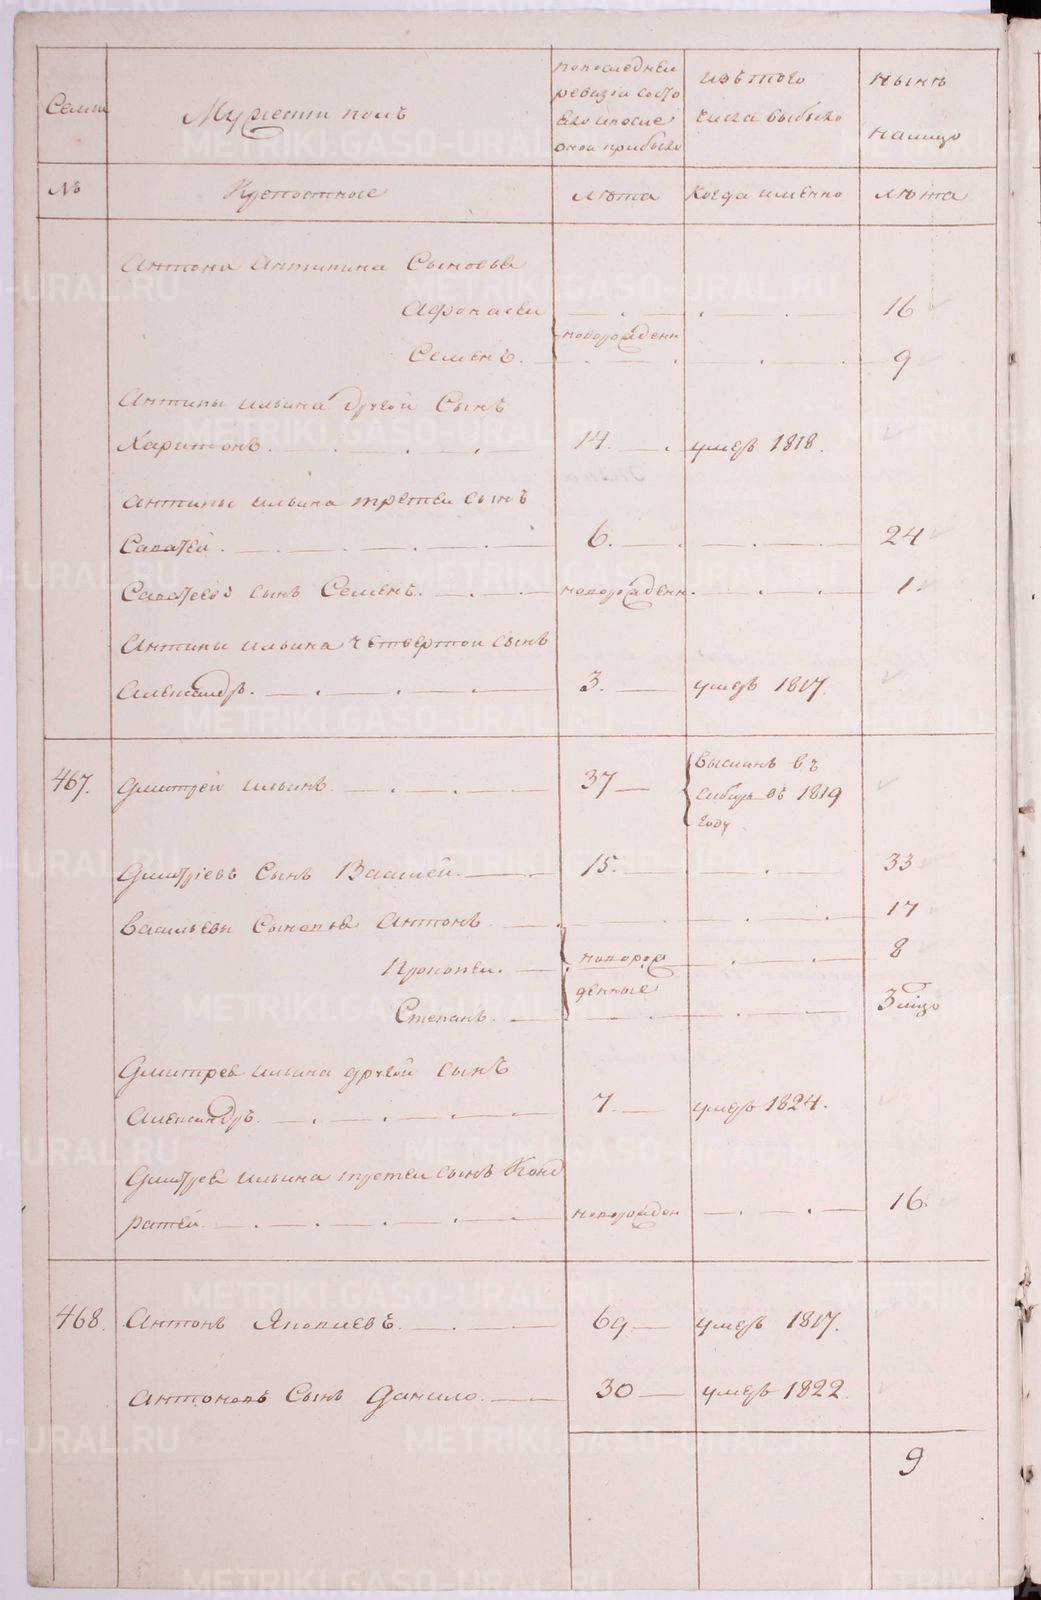 Семьи
Мужеский полъ
по последней
ревизии состо
яло и после
оной прибыло
изъ того
числа выбыло
нынѣ
налицо
№
Крепостные
лѣта
когда именно
лѣта
Антона Антипина Сыновья
Афонасеи 16
новорожденн
Семенъ. 9
Антипы ильина другой Сынъ
Харитонъ. 14. умеръ 1818.
Антипы ильина третеи сынъ
Саватей. 6. 24
Саватеевъ сынъ Семенъ. новорожденн. 1.
Антипы ильина четвертои сынъ
Александръ. 3. умеръ 1817.
467. Дмитрей ильинъ. 37 высланъ въ
сибирь въ 1819
году
Дмитріевъ Сынъ Василей. 15. 33
Васильевы Сыновья Антонъ 17
Прокопеи. новорож 8
денные
Степанъ. 3 лицо
Дмитрея ильина другой сынъ
Александръ. 7. умеръ 1824.
Дмитрея ильина третеи сынъ Конд
ратей. новорожден 16.
468. Антонъ Яковлевъ. 69 умеръ 1817.
Антоновъ Сынъ Данило. 30 умеръ 1822.
9
METRIKI.GASO-URAL.RU